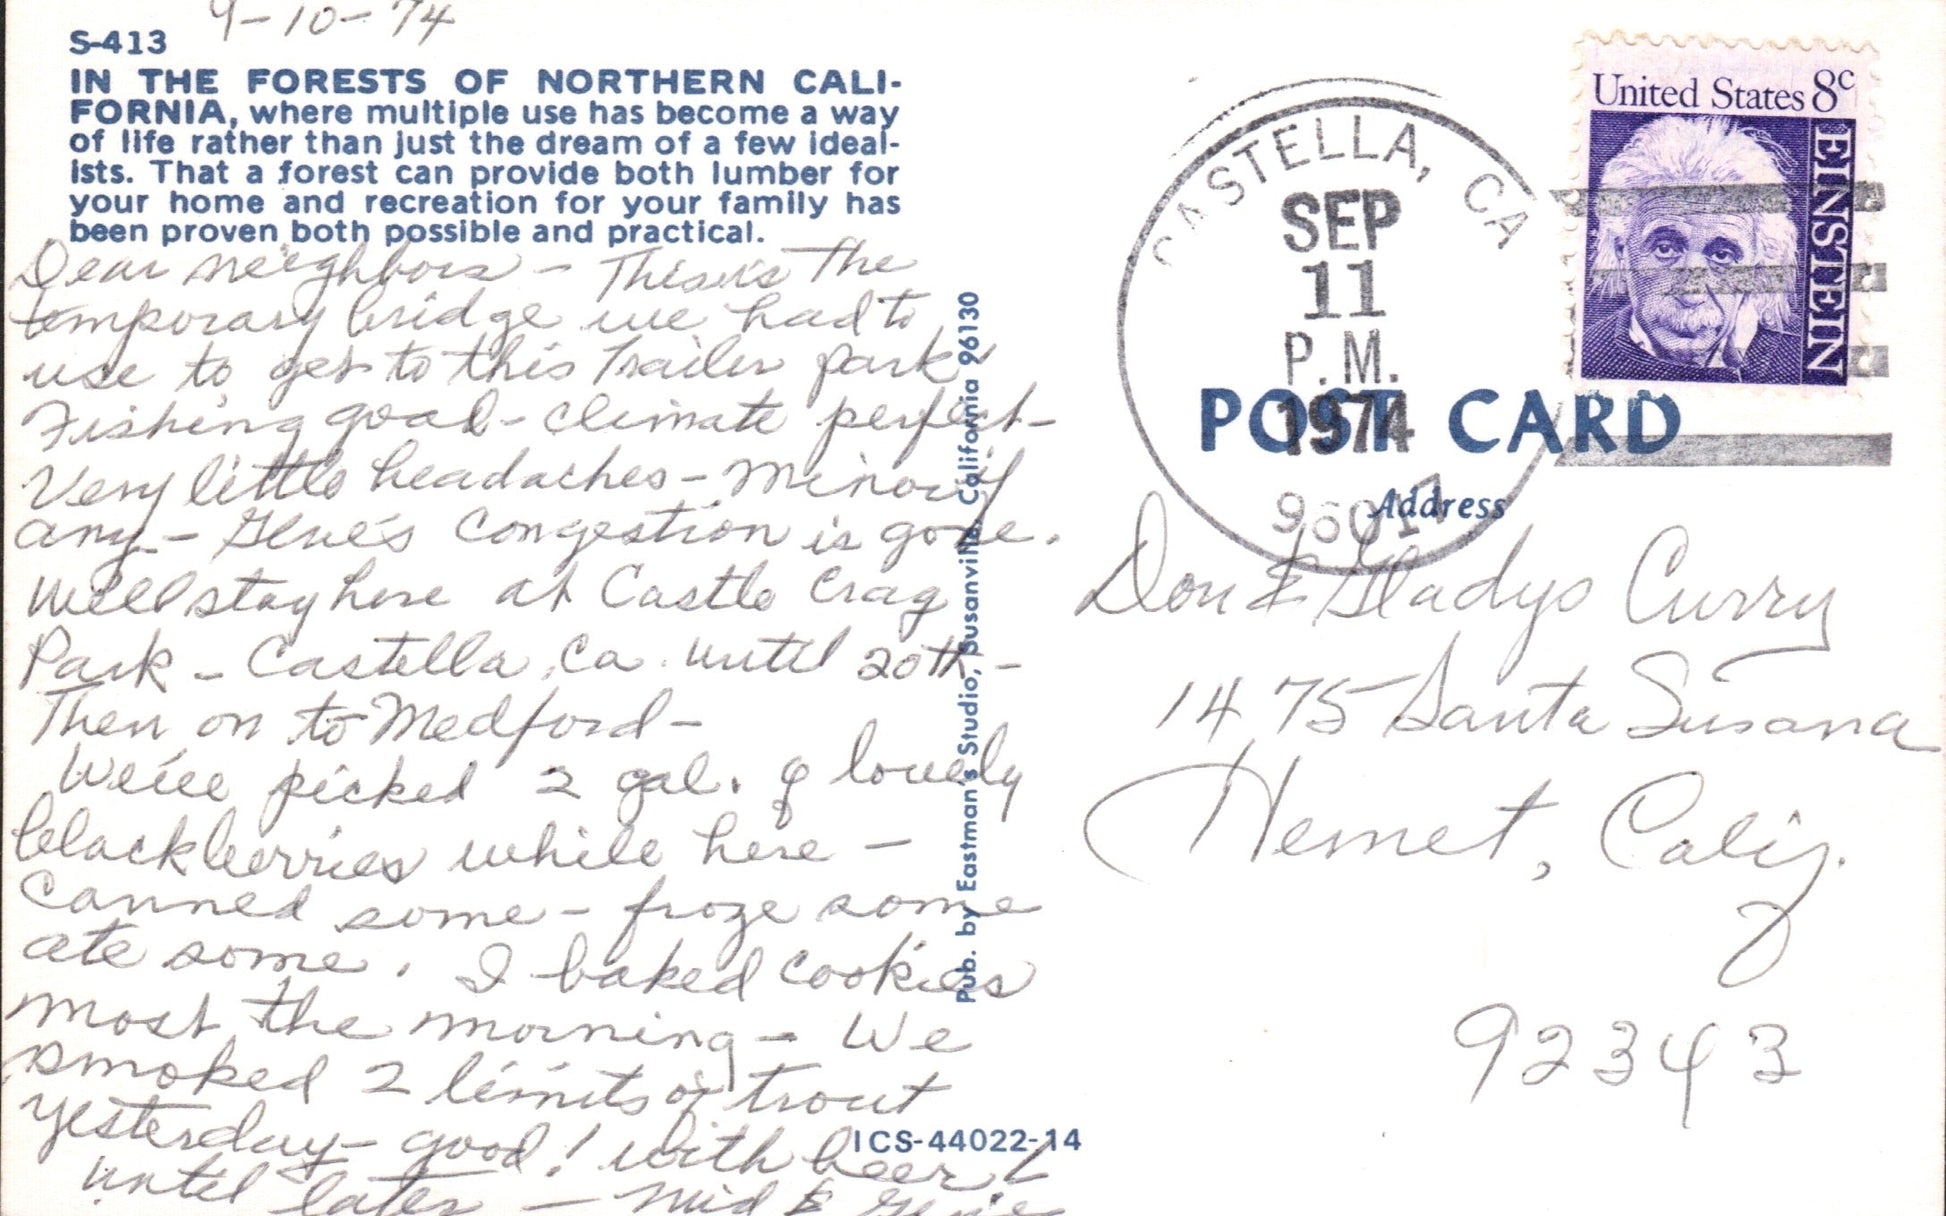 9-10-74
S-413
IN THE FORESTS OF NORTHERN CALI-
FORNIA, where multiple use has become a way
of life rather than just the dream of a few ideal-
ists. That a forest can provide both lumber for
your home and recreation for your family has
been proven both possible and practical.
Dear neighbors - This is the
temporary bridge we had to
use to get to this Trailer park
Fishing good - climate perfect -
Very little headaches - Minor if
any - Gene's Congestion is gone.
Will stay here at Castle Crag
Park - Castella, Ca. until 20th -
Then on to Medford -
We've picked 2 gal. of lovely
blackberries while here -
Canned some - froze some
ate some. I baked cookies
most the morning - We
smoked 2 limits of trout
yesterday - good! with beer!
until later - Mid & Gene
Pub. by Eastman's Studio, Susanville, California 96130
ICS-44022-14
CASTELLA, CA
SEP
11
P.M.
1974
96017
United States 8c
EINSTEIN
POST CARD
Address
Don & Gladys Curry
1475 Santa Susana
Hemet, Calif.
92343